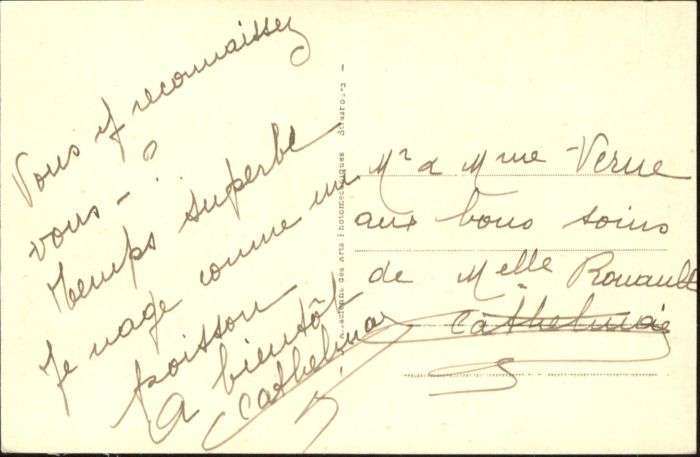 Vous y reconnaissez
vous - ?
Temps superbe
Je nage comme un
poisson
A bientôt
Ateliers des Arts Photomécaniques Strasbourg -
Mr & Mme Verne
aux bons soins
de Melle Rouault